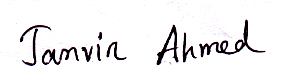 Tanvir Ahmed